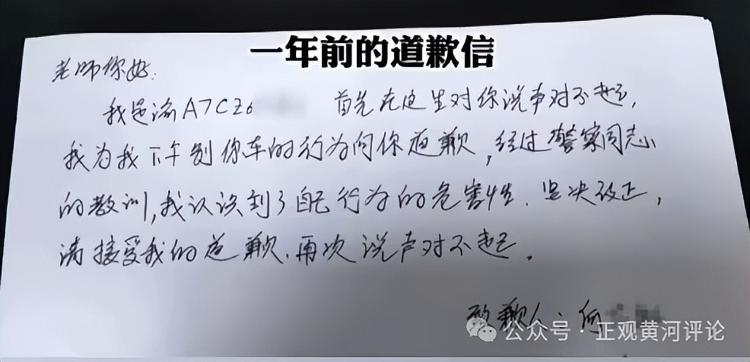 一年前的道歉信
老师你好:
我是渝A7CZ6 首先在这里对你说声对不起,
我为我下午别你车的行为向你道歉,经过警察同志
的教训,我认识到了自己行为的危害性.坚决改正,
请接受我的道歉.再次说声对不起.
致歉人:向
公众号·正观黄河评论